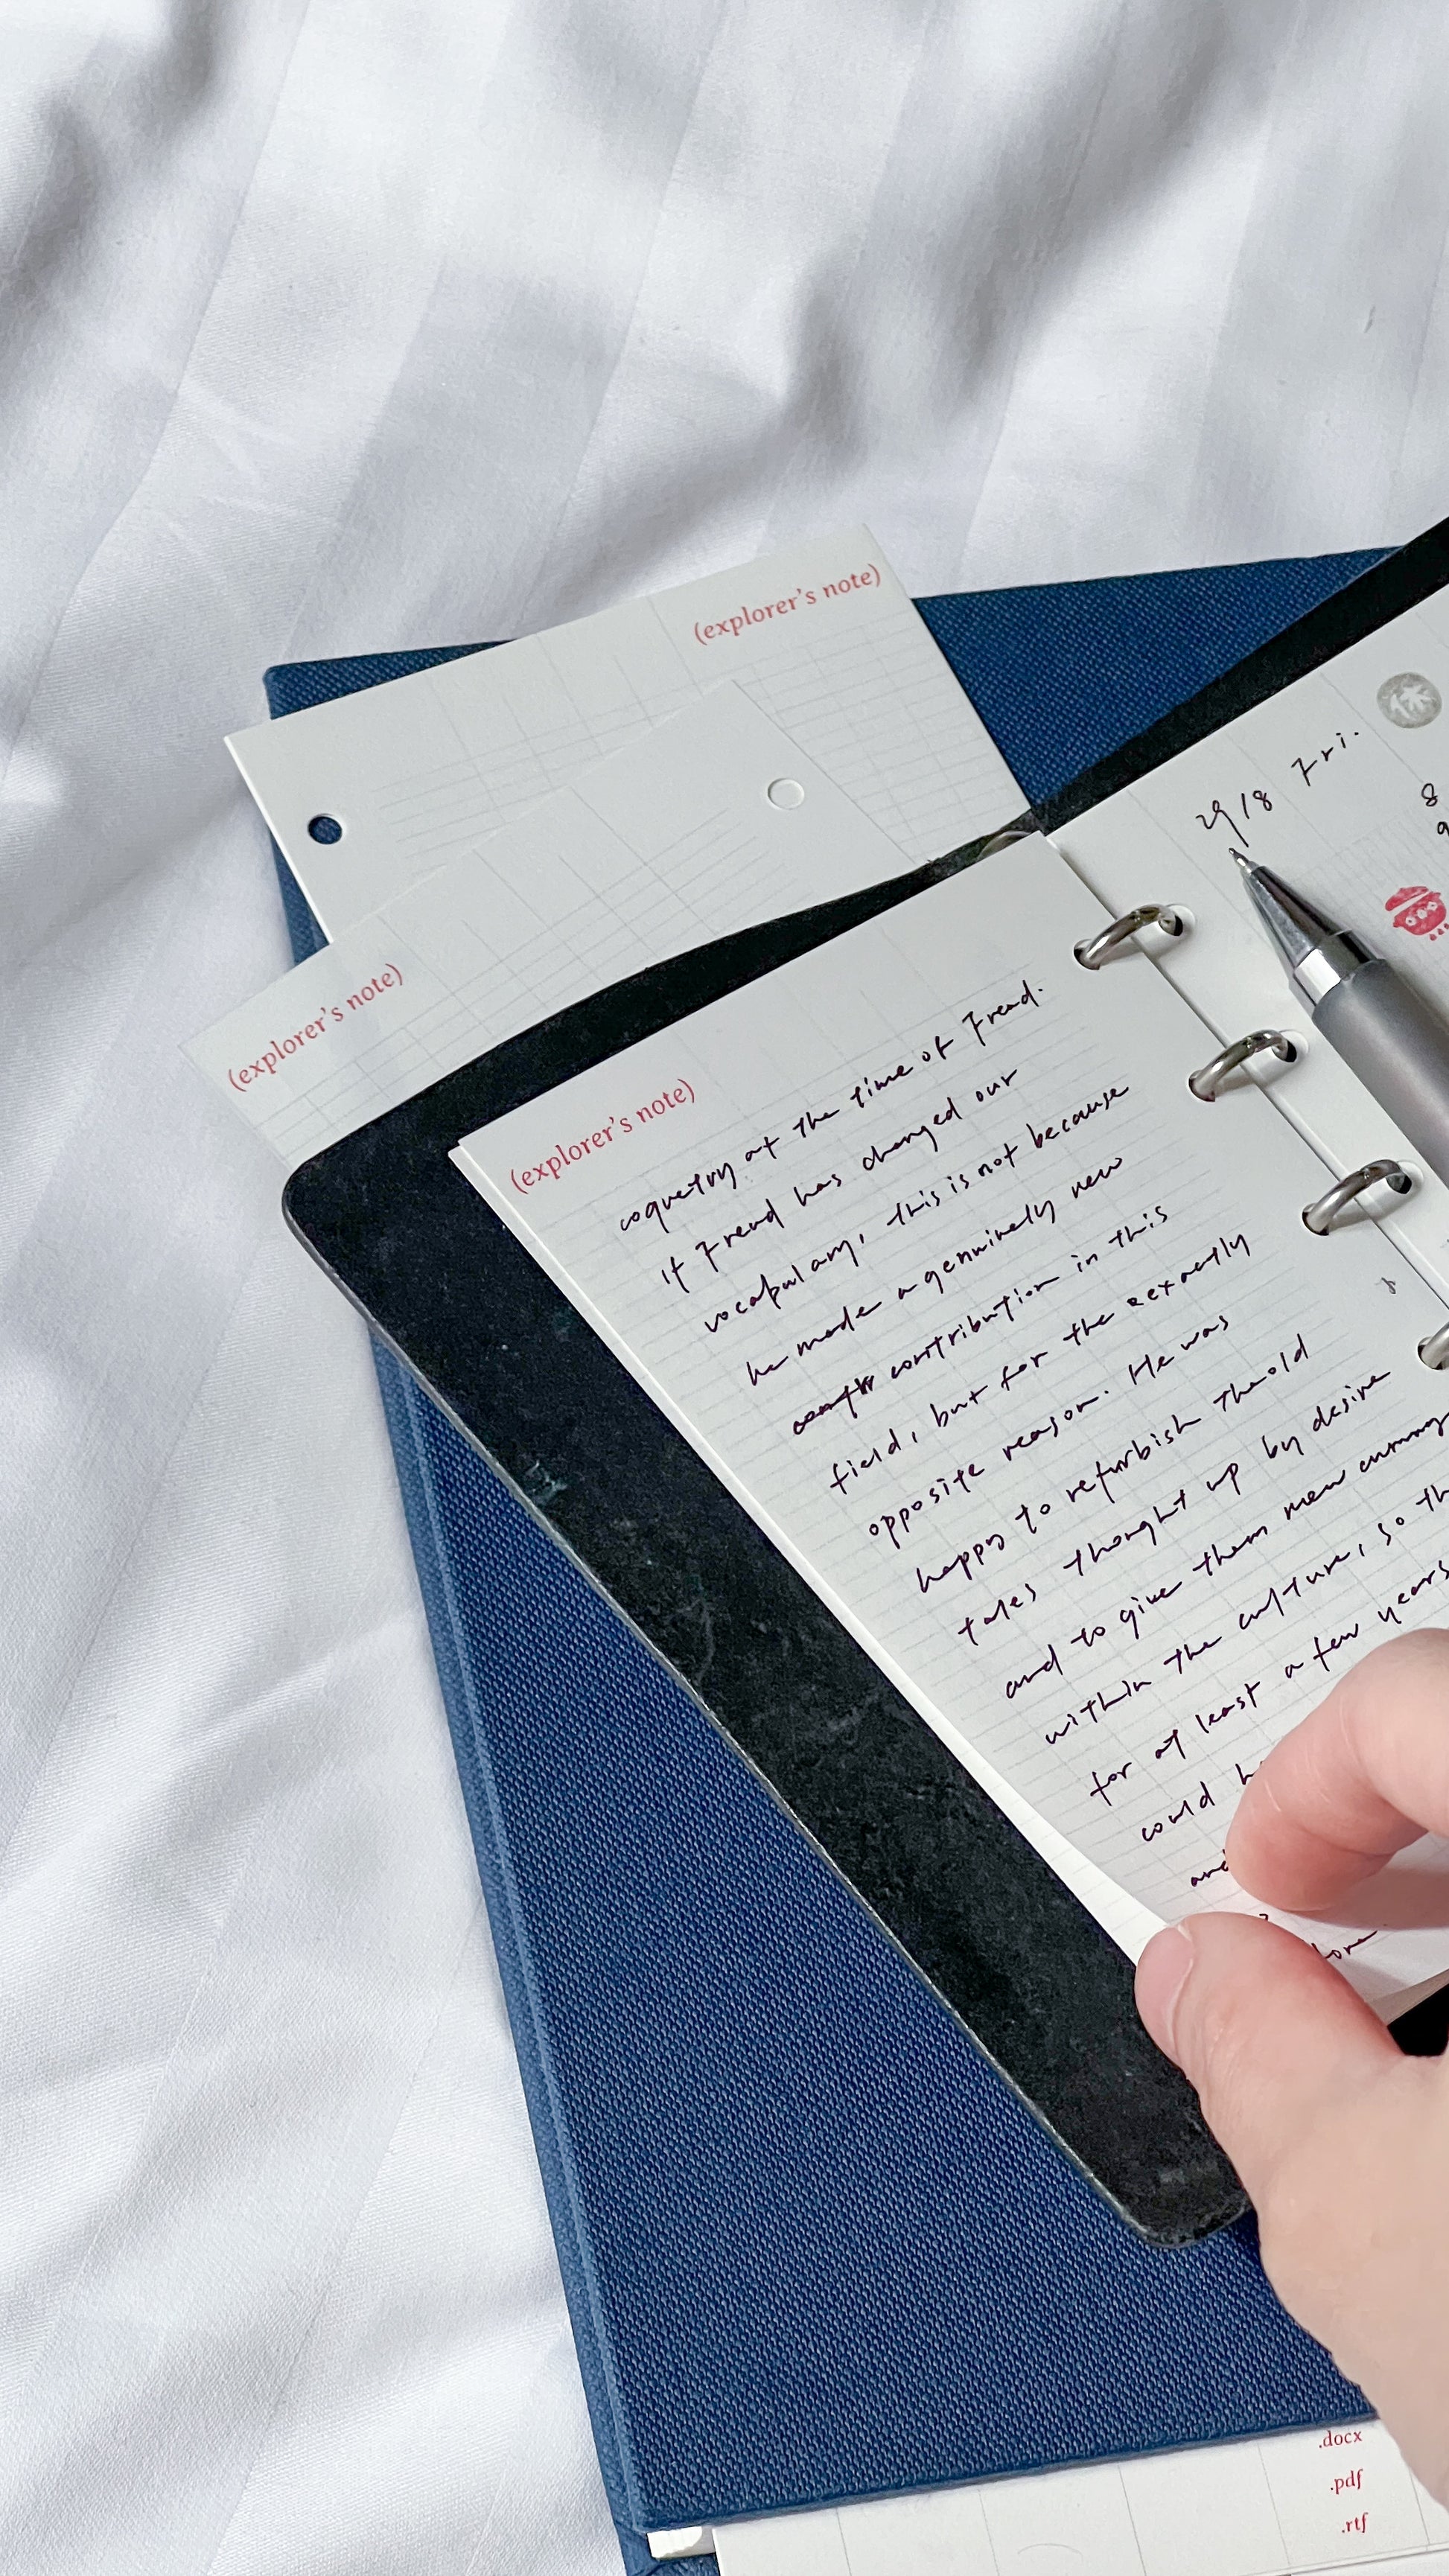 (explorer's note)
(explorer's note)
29/8 Fri.
8
9
(explorer's note)
coquetry at the time of Freud.
If Freud has changed our
vocabulary, this is not because
he made a genuinely new
contribution in this
field, but for the exactly
opposite reason. He was
happy to refurbish the old
tales thought up by desire
and to give them new
within the culture, so
for at least a few years
could
and
.docx
.pdf
.rtf